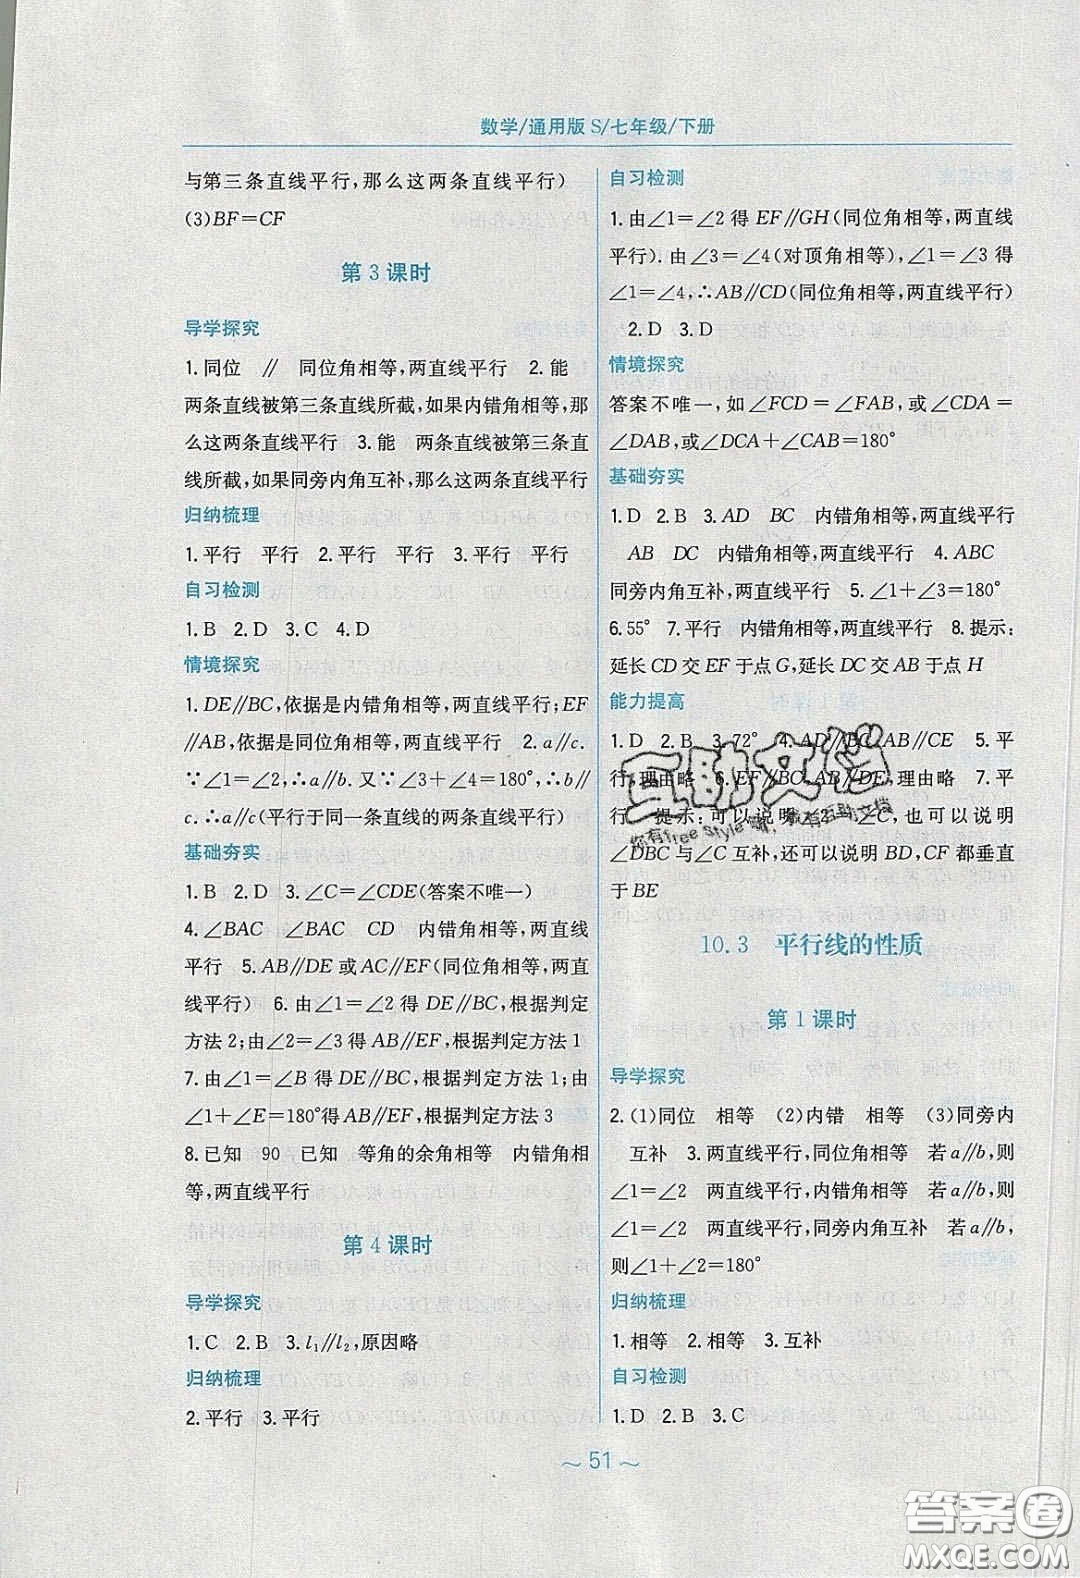 数学/通用版 S/七年级/下册
与第三条直线平行,那么这两条直线平行)
(3)BF=CF
第 3 课时
导学探究
1.同位　∥　同位角相等,两直线平行　2.能
两条直线被第三条直线所截,如果内错角相等,那
么这两条直线平行　3.能　两条直线被第三条直
线所截,如果同旁内角互补,那么这两条直线平行
归纳梳理
1.平行　平行　2.平行　平行　3.平行　平行
自习检测
1.B　2.D　3.C　4.D
情境探究
1.DE∥BC,依据是内错角相等,两直线平行;EF
∥AB,依据是同位角相等,两直线平行　2.a∥c.
∵∠1=∠2,∴a∥b.又∵∠3+∠4=180°,∴b∥
c.∴a∥c(平行于同一条直线的两条直线平行)
基础夯实
1.B　2.D　3.∠C=∠CDE(答案不唯一)
4.∠BAC　∠BAC　CD　内错角相等,两直线
平行　5.AB∥DE或AC∥EF(同位角相等,两直
线平行)　6.由∠1=∠2得DE∥BC,根据判定
方法2;由∠2=∠3得AB∥EF,根据判定方法1
7.由∠1=∠B得DE∥BC,根据判定方法1;由
∠1+∠E=180°得AB∥EF,根据判定方法3
8.已知　90　已知　等角的余角相等　内错角相
等,两直线平行
第 4 课时
导学探究
1.C　2.B　3.l₁∥l₂,原因略
归纳梳理
2.平行　3.平行
自习检测
1.由∠1=∠2得EF∥GH(同位角相等,两直线
平行).由∠3=∠4(对顶角相等),∠1=∠3得
∠1=∠4,∴AB∥CD(同位角相等,两直线平行)
2.D　3.D
情境探究
答案不唯一,如∠FCD=∠FAB,或∠CDA=
∠DAB,或∠DCA+∠CAB=180°
基础夯实
1.D　2.B　3.AD　BC　内错角相等,两直线平行
AB　DC　内错角相等,两直线平行　4.ABC
同旁内角互补,两直线平行　5.∠1+∠3=180°
6.55°　7.平行　内错角相等,两直线平行　8.提示:
延长CD交EF于点G,延长DC交AB于点H
能力提高
1.D　2.B　3.72°　4.AD∥BC,AB∥CE　5.平
行,理由略　6.EF∥BC,AB∥DE,理由略　7.平
行　提示:可以说明∠2=∠C,也可以说明
∠DBC与∠C互补,还可以说明BD,CF都垂直
于BE
10.3　平行线的性质
第 1 课时
导学探究
2.(1)同位　相等　(2)内错　相等　(3)同旁内
互补　3.两直线平行,同位角相等　若a∥b,则
∠1=∠2　两直线平行,内错角相等　若a∥b,则
∠1=∠2　两直线平行,同旁内角互补　若a∥b,
则∠1+∠2=180°
归纳梳理
1.相等　2.相等　3.互补
自习检测
1.D　2.B　3.C
~ 51 ~
互助文档
你有free Style嘛，我有互助文档
答案圈
MXQE.COM